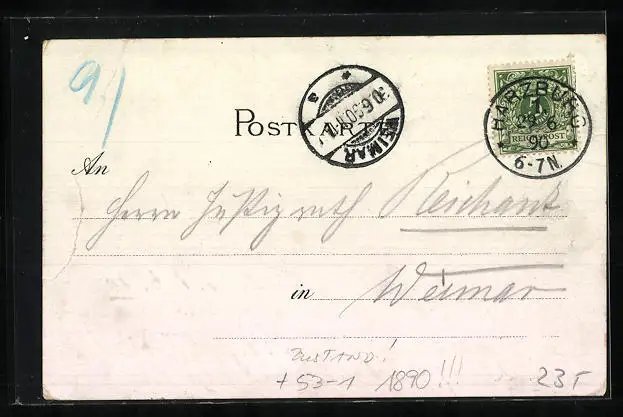 91
POSTKARTE
WEIMAR
HARZBURG
29 6
90
6-7N.
REICHSPOST
An
Herrn Justizrath Reichardt
in Weimar
Zustand!
+ 53-1 1890!!!
23,-